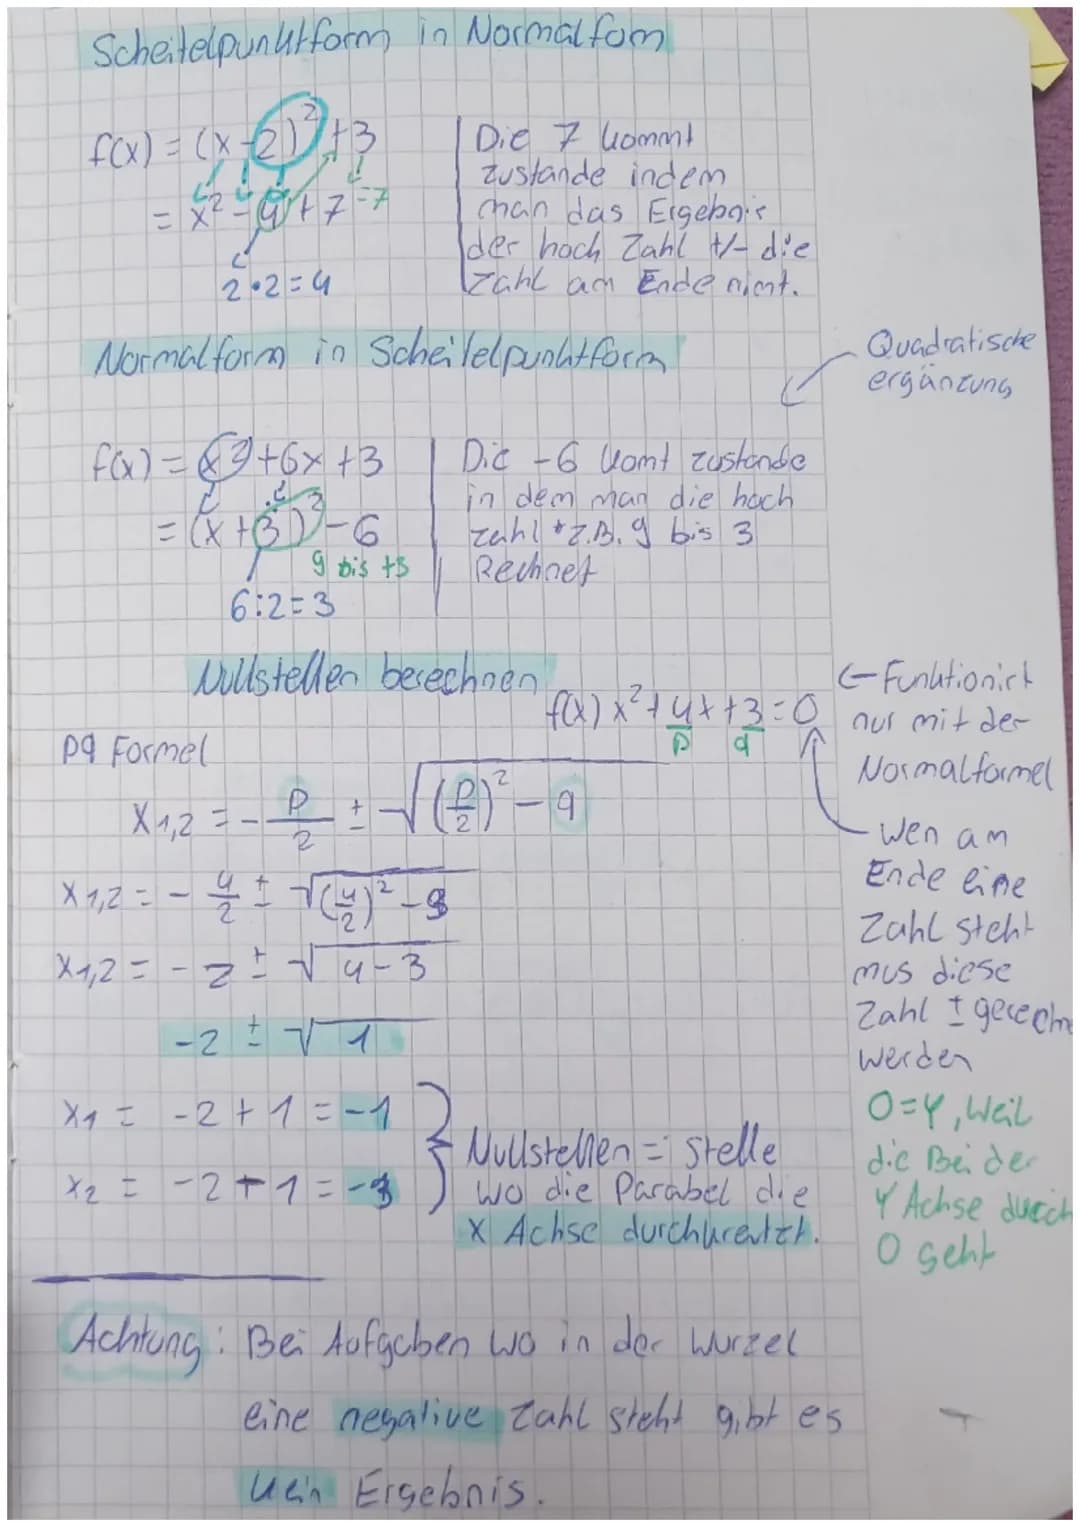 Scheitelpunktform in Normalfom
f(x) = (x-2)² +3
= x² - 4 + 7 =7
2•2=4
Die 7 kommt
zustande indem
man das Ergebnis
der hoch Zahl +/- die
Zahl am Ende nimt.
Normalform in Scheitelpunktform
Quadratische
ergänzung
f(x) = x² +6x +3
= (x+3)² -6
9 bis +3
6:2=3
Die -6 komt zustande
in dem man die hoch
zahl z.B. 9 bis 3
Rechnet
Nullstellen berechnen
f(x) x²+4x+3=0
p q
← Funktioniert
nur mit der
Normalformel
pq Formel
x1,2 = - p/2 ± √(p/2)² - q
x1,2 = - 4/2 ± √(4/2)² - 3
x1,2 = - 2 ± √4-3
-2 ± √1
Wen am
Ende eine
Zahl steht
mus diese
Zahl ± gerechne
werden
x1 = -2+1 = -1
x2 = -2-1 = -3
Nullstellen = stelle
wo die Parabel die
X Achse durchkreutzt.
0=Y, Weil
die Bei der
Y Achse durch
0 geht
Achtung: Bei Aufgaben wo in der Wurzel
eine negative Zahl steht gibt es
kein Ergebnis.